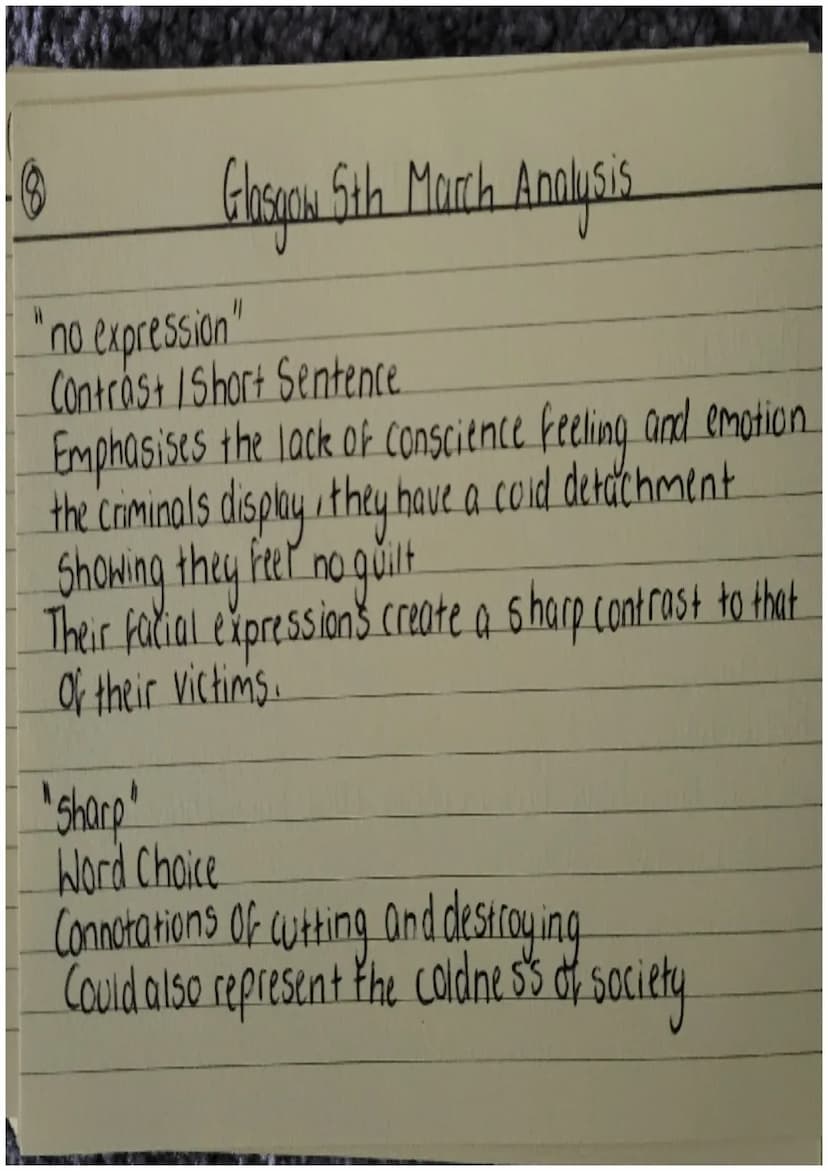 ⑧ Glasgow 5th March Analysis
"no expression"
Contrast / Short Sentence
Emphasises the lack of conscience feeling and emotion
the criminals display, they have a cold detachment
Showing they feel no guilt
Their facial expressions create a sharp contrast to that
of their victims.
"Sharp"
Word Choice
Connotations of cutting and destroying
Could also represent the coldness of society